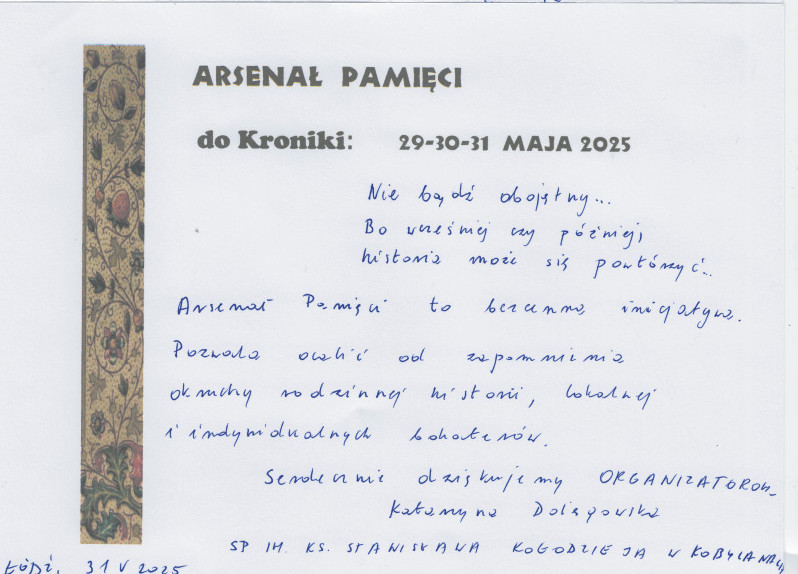 ARSENAŁ PAMIĘCI
do Kroniki: 29-30-31 MAJA 2025
Nie bądź obojętny...
Bo wcześniej czy później,
historia może się powtórzyć...
Arsenał Pamięci to bezcenna inicjatywa.
Pozwala ocalić od zapomnienia
okruchy rodzinnej historii, lokalnej
i indywidualnych bohaterów.
Serdecznie dziękujemy ORGANIZATOROM
Katarzyna
SP IM. KS. STANISŁAWA KOŁODZIEJA W KOBYLANACH
ŁÓDŹ, 31 V 2025